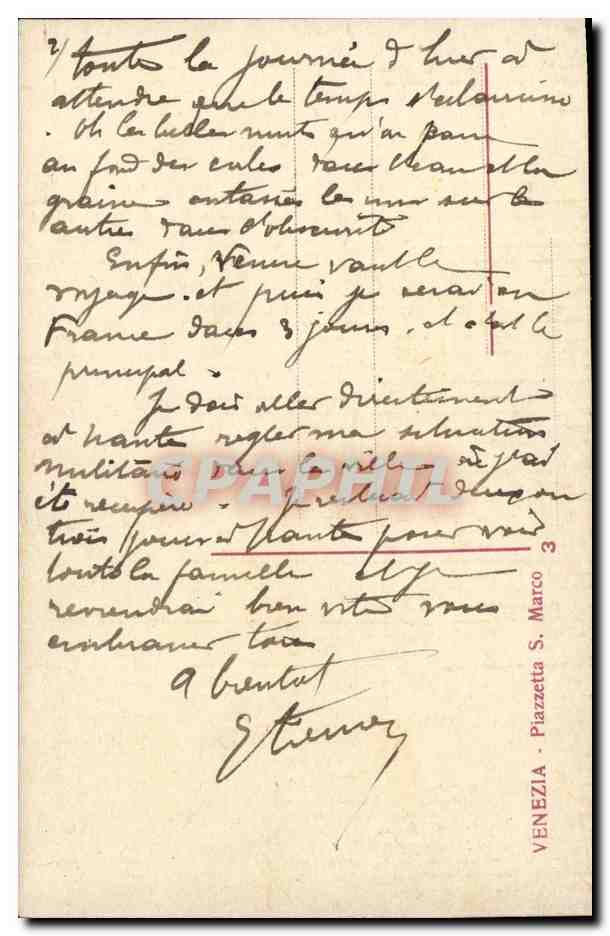 2/ toute la journée d'hier à
attendre que le temps s'éclaircisse
. Oh les belles nuits qu'on passe
au fond des cales dans l'eau et la
graine entassés les uns sur les
autres dans l'obscurité
Enfin, Venise vaut le
voyage. et puis je serai en
France dans 3 jours. et c'est le
principal.
Je dois aller directement
à Nantes regler ma situation
militaire dans la ville où j'ai
été récupéré. Je resterai deux ou
trois jours à Nantes pour voir
toute la famille et je
reviendrai bien vite vous
embrasser tous
A bientot
Etienne
CPAPHIL
VENEZIA - Piazzetta S. Marco 3